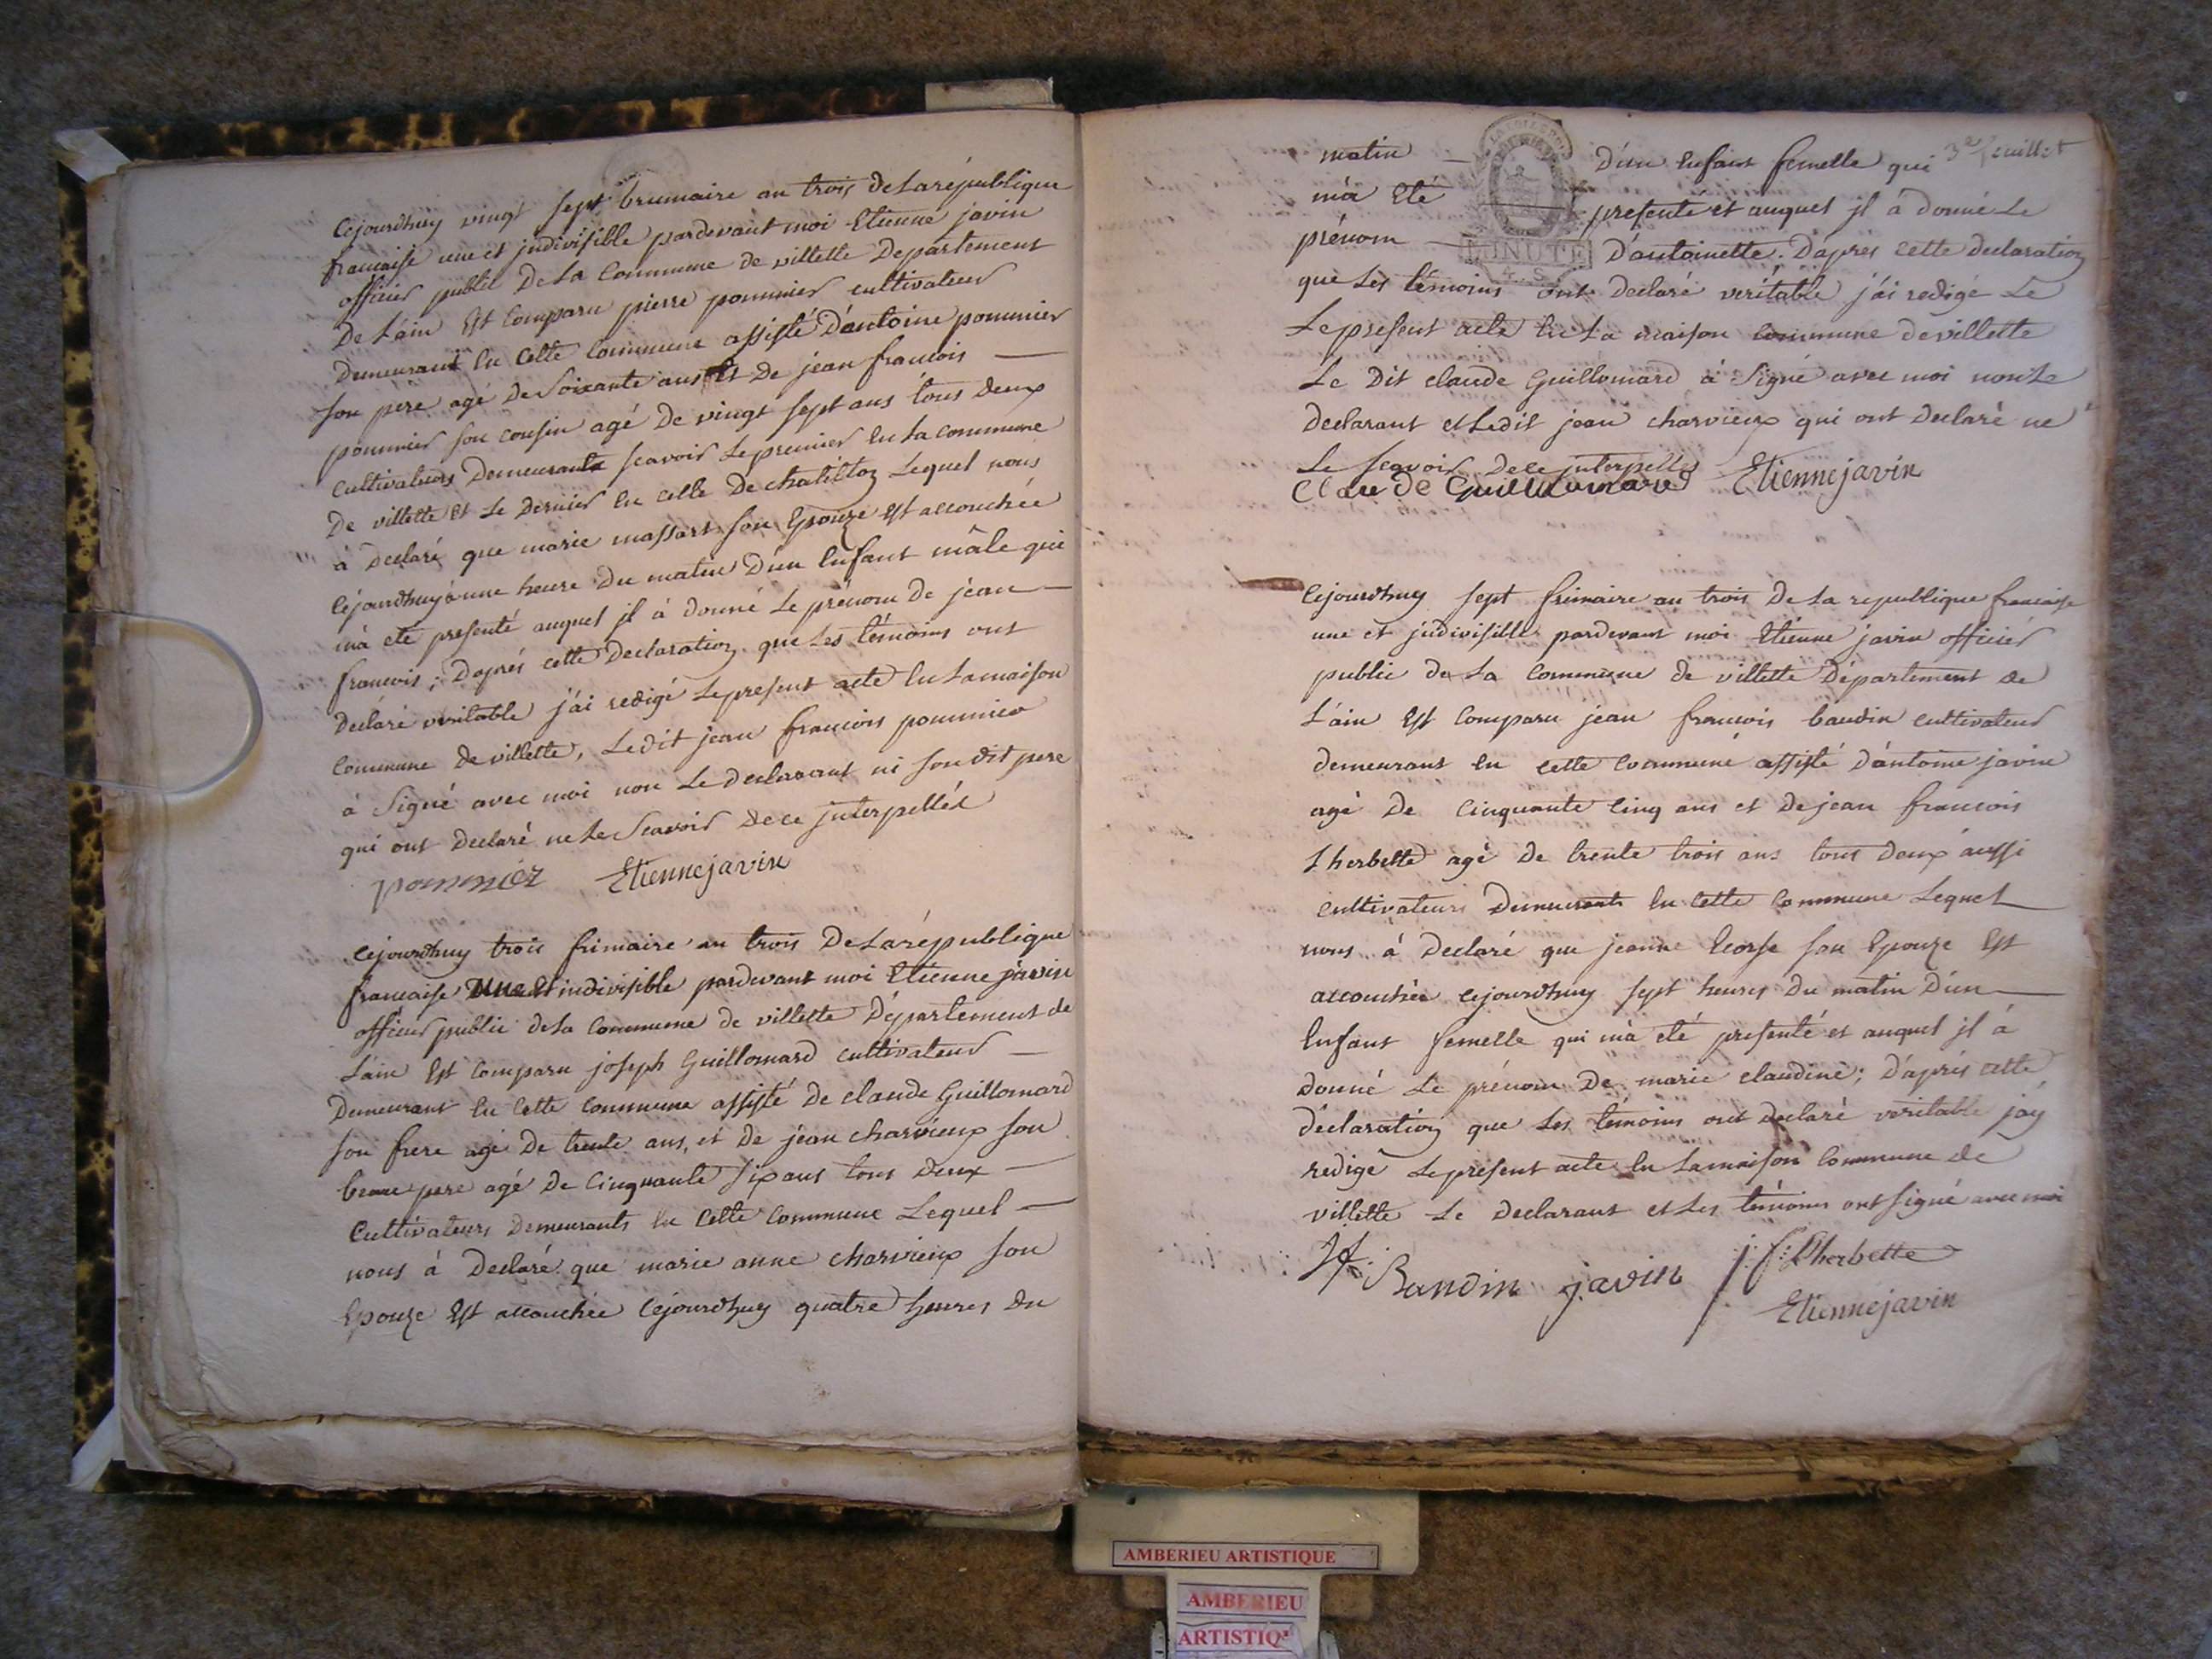 Cejourdhuy vingt sept brumaire an trois De Larépublique
francaise une et jndivisible pardevant moi Etienne javin
officier public De La Commune de villette Departement
De L'ain Est Comparu pierre pommier cultivateur
Demeurant En Cette Commune assisté D'antoine pommier
son pere agé De Soixante ans Et De jean francois
pommier son cousin agé De vingt sept ans tous deux
Cultivateurs Demeurants scavoir Le premier En La commune
De villette Et Le Dernier En celle De chatillon Lequel nous
à Declaré que marie massart son Epouze Est accouchée
Cejourdhuy à une heure Du matin D'un Enfant mâle qui
m'a eté presenté auquel jl à donné Le prénom De jean
francois ; D'aprés cette Declaration que Les témoins ont
Declaré veritable j'ai redigé Le present acte En La maison
Commune de villette, Ledit jean francois pommier
à Signé avec moi non Le declarant ni son dit pere
qui ont Declaré ne Le Scavoir De ce jnterpellés
pommiez Etiennejavin
Cejourdhuy trois frimaire an trois De Larépublique
francaise Une Et indivisible pardevant moi Etienne javin
officier public de La Commune de villette Département de
L'ain Est Comparu joseph Guillomard cultivateur
Demeurant En Cette Commune assisté De claude Guillomard
son frere agé De trente ans, et De jean charvieux son
beau pere agé De Cinquante six ans tous Deux
Cultivateurs Demeurants En Cette Commune Lequel
nous à Declaré que marie anne charvieux son
Epouze Est accouchée Cejourdhuy quatre heures Du
3e feuillet
matin D'un Enfant femelle qui
m'a Eté presenté et auquel jl à donné Le
prénom D'antoinette. D'aprés cette Declaration
MINUTE
4. S.
que Les témoins ont Declaré veritable j'ai redigé Le
Le present acte En La maison commune de villette
Le Dit claude Guillomard à Signé avec moi non Le
Declarant et Ledit jean charvieux qui ont Declaré ne
Le scavoir De ce jnterpellés Etiennejavin
Claude Guillaumard
Cejourdhuy sept frimaire an trois De La republique francaise
une et jndivisible pardevant moi Etienne javin officier
public de La Commune de villette Département de
L'ain Est Comparu jean francois baudin cultivateur
demeurant En cette Commune assisté D'antoine javin
agé De Cinquante Cinq ans et De jean francois
Lherbette agé De trente trois ans tous Deux aussi
cultivateurs Demeurants En Cette Commune Lequel
nous à Declaré que jeanne son Epouze Est
accouchée Cejourdhuy sept heures Du matin D'un
Enfant femelle qui m'a eté presenté et auquel jl à
donné Le prénom De marie claudine ; D'aprés cette
déclaration que Les témoins ont declaré veritable j'ay
redigé Le present acte En La maison Commune de
villette Le Declarant et Les témoins ont signé avec moi
Jf. Baudin javin j. f. Lherbette
Etiennejavin
AMBERIEU ARTISTIQUE
AMBERIEU
ARTISTIQ